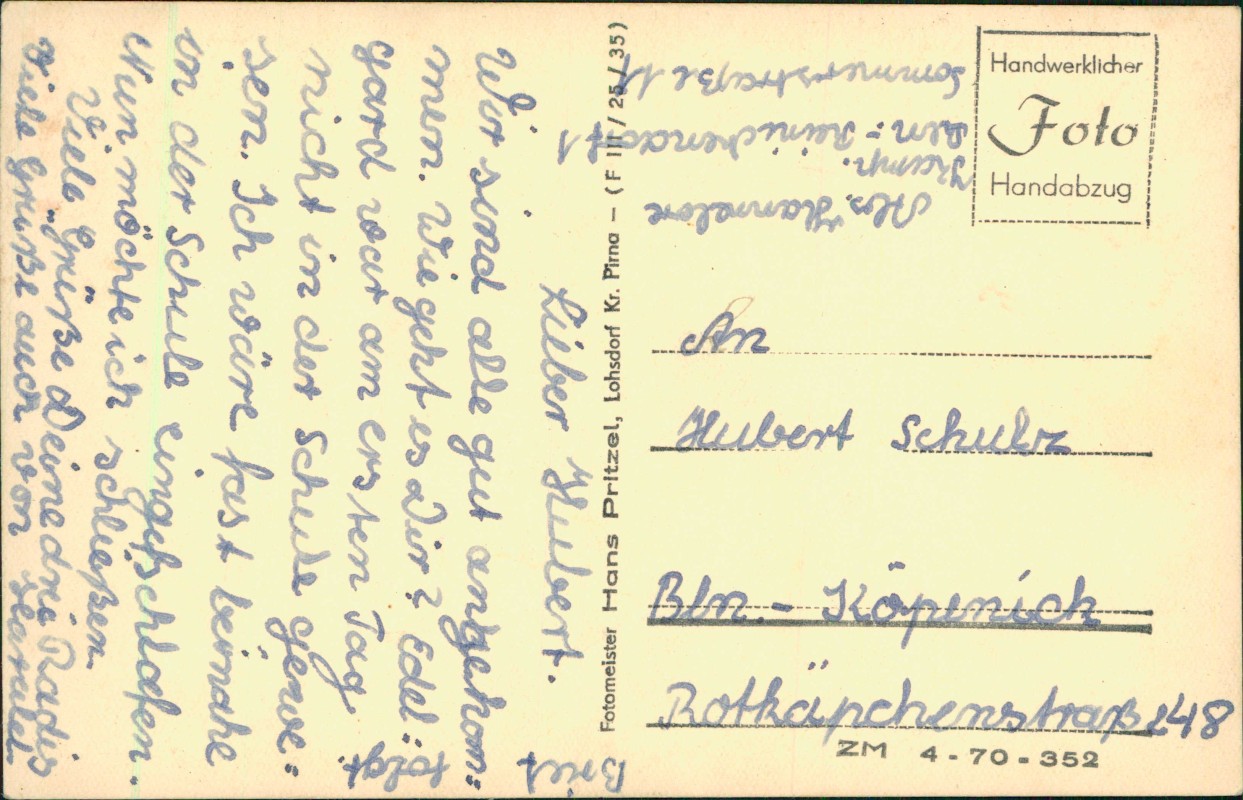 Lieber Hubert.
Wir sind alle gut angekom=
men. Wie geht es Dir? Edel=
gard war am ersten Tag
nicht in der Schule gewe=
sen. Ich wäre fast beinahe
in der Schule eingeschlafen.
Nun möchte ich schließen.
Viele Grüße Deine drei Radis
Viele Grüße auch von
Brief folgt.
Fotomeister Hans Pritzel, Lohsdorf Kr. Pirna – (F III / 25 / 35)
Abs. Hannelore
Kamp.
Bln.- Reinickendorf 1
Sommerstraße 17
Handwerklicher
Foto
Handabzug
An
Hubert Schulz
Bln. - Köpenick
Rotkäpchenstraße 48
ZM 4-70-352